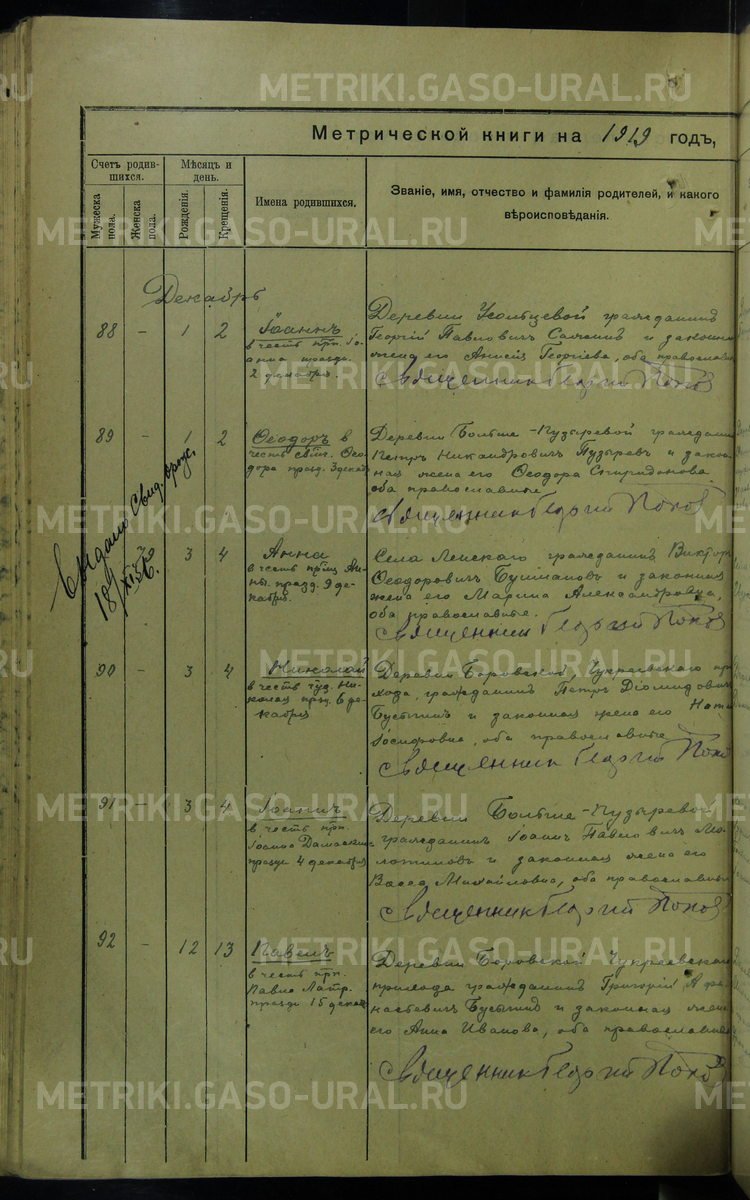 METRIKI.GASO-URAL.RU
Метрической книги на 1919 годъ,
Счетъ родив-
шихся.
Мѣсяцъ и
день.
Мужеска
пола.
Женска
пола.
Рожденія.
Крещенія.
Имена родившихся.
Званіе, имя, отчество и фамилія родителей, и какого
вѣроисповѣданія.
Декабрь
88 - 1 2
Іоаннъ
в честь прп. Іо-
анна праздн.
2 декабря.
Деревни гражданинъ
Георгій Павловичъ и законн
жена его Георгіева, оба православн
Священник Георгий Попов
89 - 1 2
Ѳеодоръ в
честь Ѳео-
дора празд. 3 декаб
Деревни Больше-Пузыревой граждани
Петръ Никандровичъ Пузыревъ и закон-
ная жена его Ѳеодора Спиридонова
оба православные.
Священник Георгий Попов
Выдано Свид.
3 4
Анна
в честь прпц Ан-
ны празд. 9 де-
кабря.
Села Ленскаго гражданинъ Виктор
Ѳеодоровичъ и законная
жена его Марина Александровна,
оба православные.
Священник Георгий Попов
90 - 3 4
Николай
в честь чуд. Ни-
колая прзд. 6 де-
кабря
Деревни Боровской, Чукреевскаго при
хода, гражданинъ Петръ Діомидович
и законная жена его
Іосифовна, оба православные
Священник Георгий Попов
91 - 3 4
Іоаннъ
в честь прп.
Іоанна Дамаскин
праздн 4 декабря
Деревни Больше-Пузыревой
гражданинъ Іоаннъ Павловичъ
и законная жена его
Михайловна, оба православные
Священник Георгий Попов
92 - 12 13
Павелъ
в честь прп.
Павла Латр.
праздн 15 декаб
Деревни Боровской Чукреевскаго
прихода гражданинъ Григорій Афа
насьевичъ и законная жена
его Анна Иванова, оба православные
Священник Георгий Попов